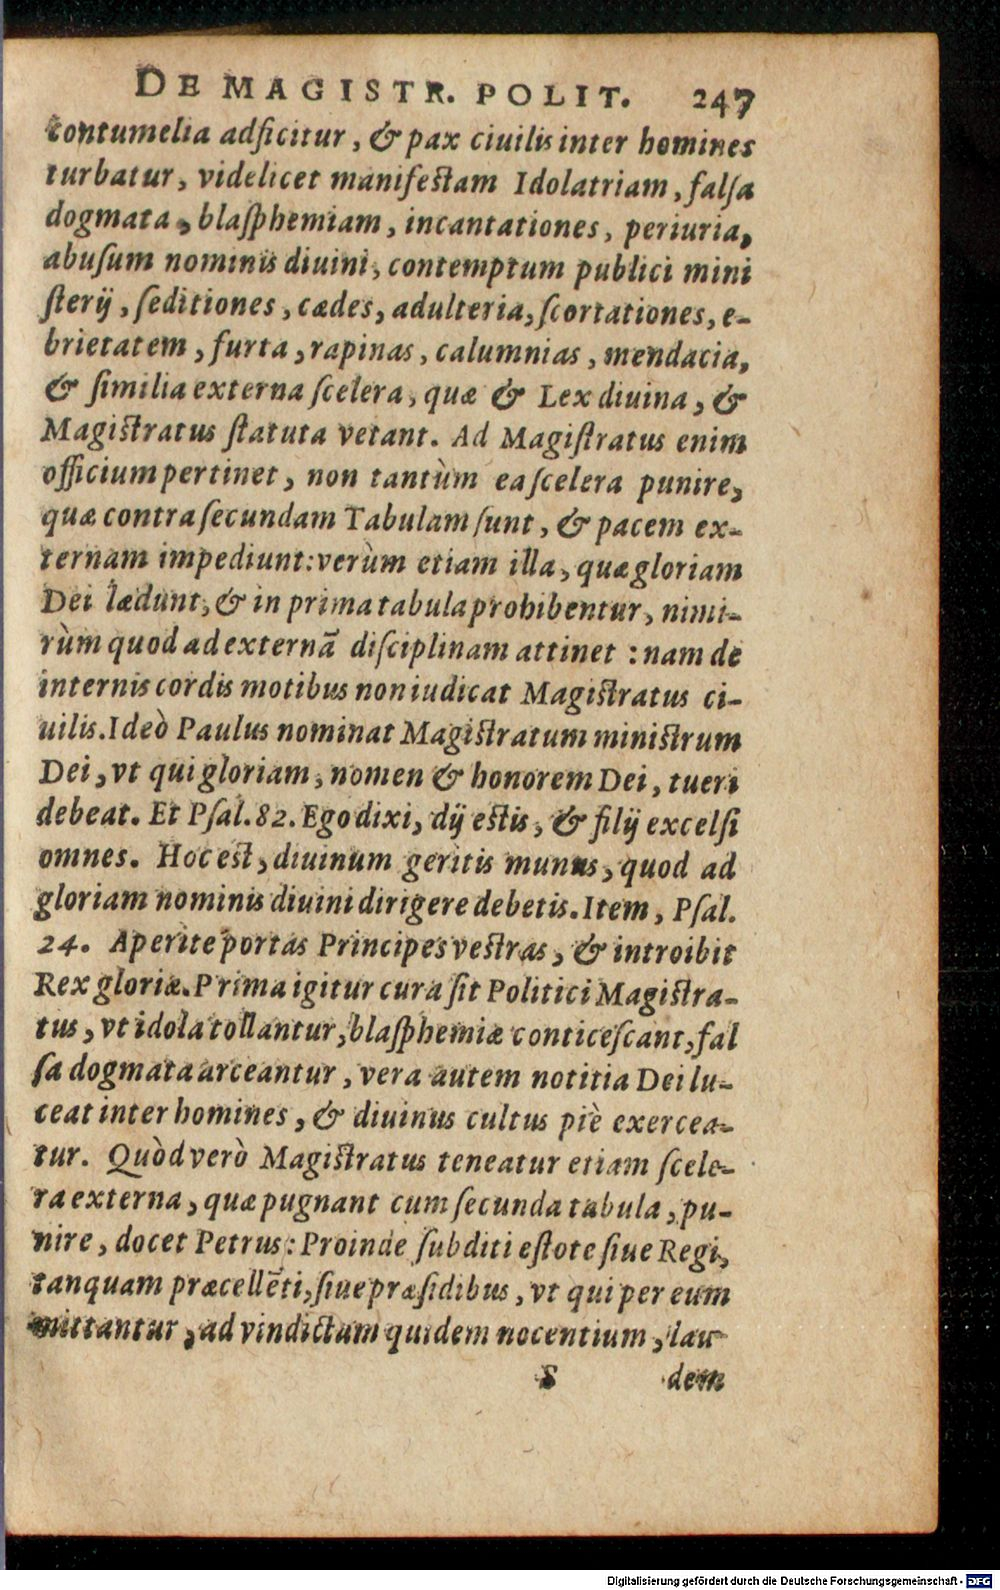 DE MAGISTR. POLIT. 247
contumelia adficitur, & pax ciuilis inter homines
turbatur, videlicet manifestam Idolatriam, falſa
dogmata, blaſphemiam, incantationes, periuria,
abuſum nominis diuini, contemptum publici mini
ſterij, ſeditiones, cædes, adulteria, ſcortationes, e-
brietatem, furta, rapinas, calumnias, mendacia,
& ſimilia externa ſcelera, quæ & Lex diuina, &
Magistratus ſtatuta vetant. Ad Magiſtratus enim
officium pertinet, non tantùm ea ſcelera punire,
quæ contra ſecundam Tabulam ſunt, & pacem ex-
ternam impediunt: verùm etiam illa, quæ gloriam
Dei lædunt, & in prima tabula prohibentur, nimi-
rùm quod ad externã diſciplinam attinet: nam de
internis cordis motibus non iudicat Magistratus ci-
uilis. Ideò Paulus nominat Magistratum ministrum
Dei, vt qui gloriam, nomen & honorem Dei, tueri
debeat. Et Pſal. 82. Ego dixi, dij estis, & filij excelſi
omnes. Hoc est, diuinum geritis munus, quod ad
gloriam nominis diuini dirigere debetis. Item, Pſal.
24. Aperite portas Principes vestras, & introibit
Rex gloriæ. Prima igitur cura ſit Politici Magistra-
tus, vt idola tollantur, blaſphemiæ conticeſcant, fal
ſa dogmata arceantur, vera autem notitia Dei lu-
ceat inter homines, & diuinus cultus piè exercea-
tur. Quòd verò Magistratus teneatur etiam ſcele-
ra externa, quæ pugnant cum ſecunda tabula, pu-
nire, docet Petrus: Proinde ſubditi eſtote ſiue Regi,
tanquam præcellẽti, ſiue præſidibus, vt qui per eum
mittantur, ad vindictam quidem nocentium, lau
S dem
Digitalisierung gefördert durch die Deutsche Forschungsgemeinschaft - DFG